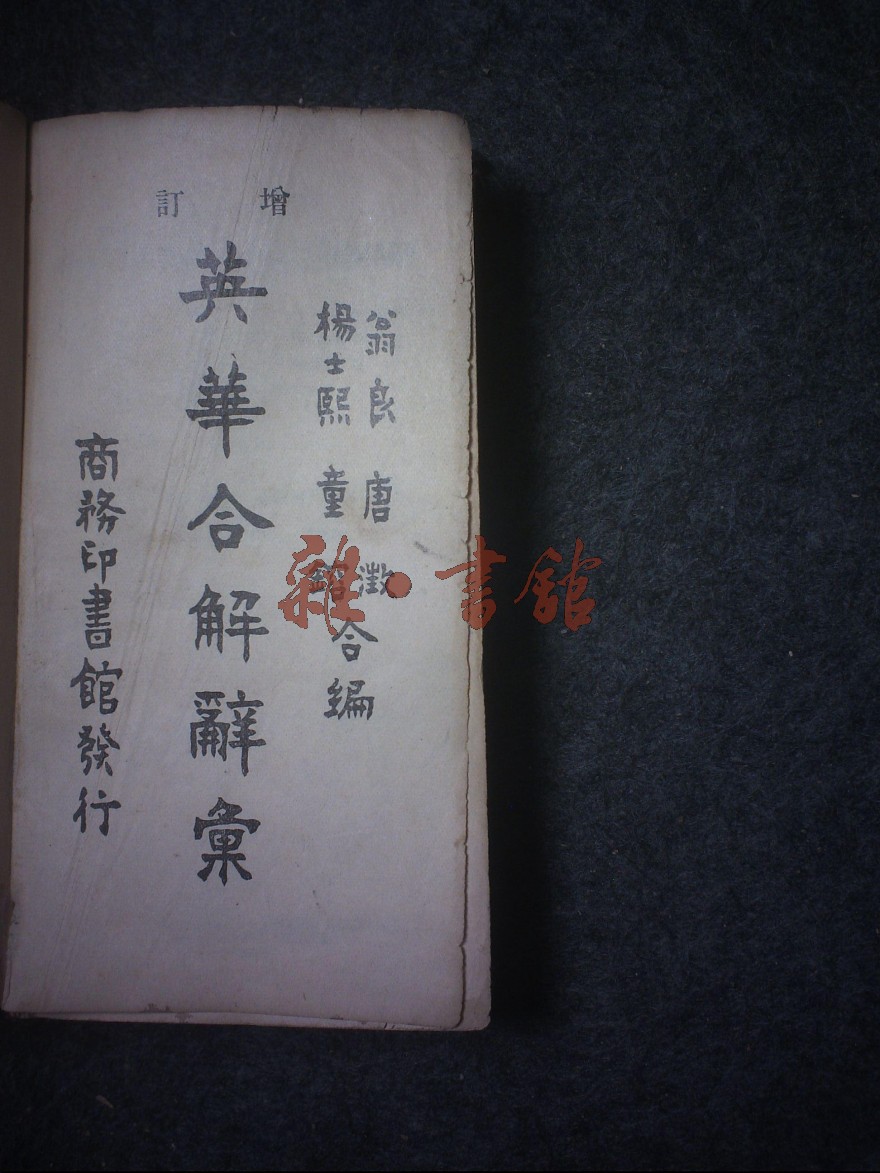 增訂
翁良 唐澂
楊士熙 童
合編
英華合解辭彙
商務印書館發行
雜·書館